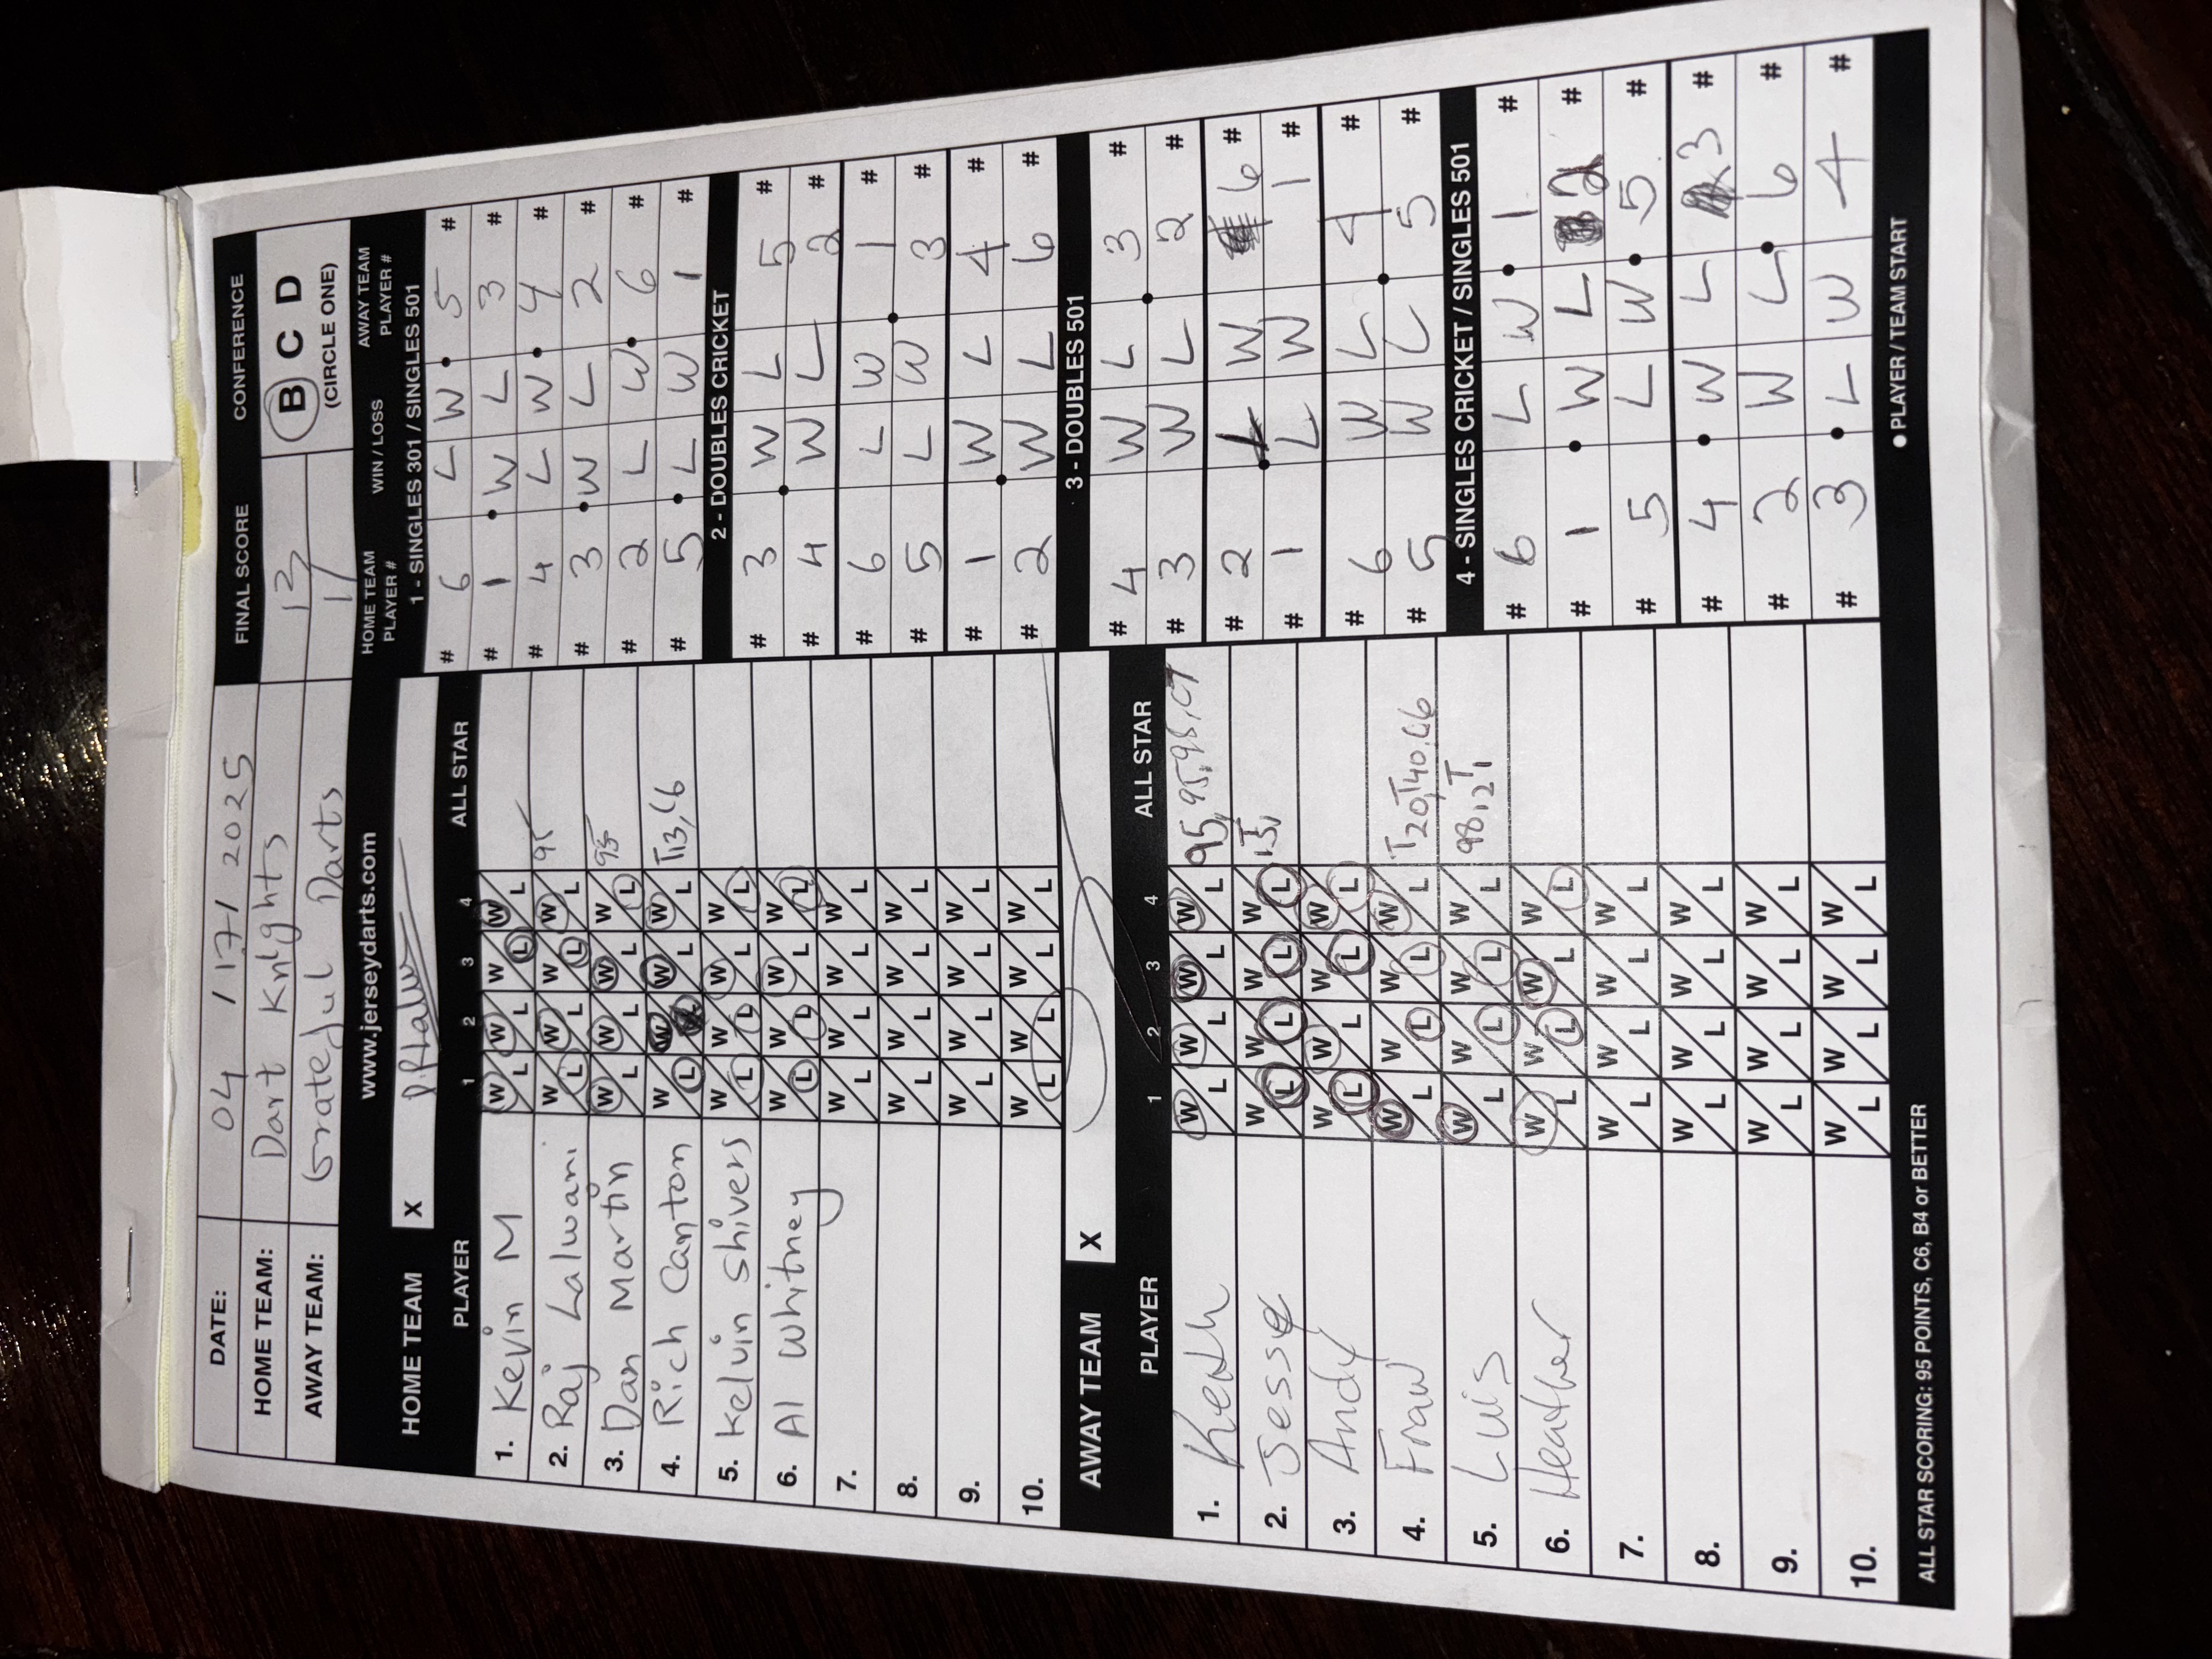 DATE: 04 / 17 / 2025 FINAL SCORE CONFERENCE
HOME TEAM: Dart Knights 13 B C D
AWAY TEAM: Grateful Darts 11 (CIRCLE ONE)
www.jerseydarts.com
HOME TEAM PLAYER # WIN / LOSS AWAY TEAM PLAYER #
HOME TEAM X
PLAYER 1 2 3 4 ALL STAR
1. Kevin M W/L W/L W/L W/L
2. Raj Lalwani W/L W/L W/L W/L 95
3. Dan Martin W/L W/L W/L W/L 95
4. Rich Canton W/L W/L W/L W/L T13, C6
5. Kelvin Shivers W/L W/L W/L W/L
6. Al Whitney W/L W/L W/L W/L
7. W/L W/L W/L W/L
8. W/L W/L W/L W/L
9. W/L W/L W/L W/L
10. W/L W/L W/L W/L
AWAY TEAM X
PLAYER 1 2 3 4 ALL STAR
1. W/L W/L W/L W/L 95, 95, 95, C7
2. Jesse W/L W/L W/L W/L
3. Andy W/L W/L W/L W/L
4. Fran W/L W/L W/L W/L T20, T40, C6
5. Luis W/L W/L W/L W/L 98, 12T1
6. Heather W/L W/L W/L W/L
7. W/L W/L W/L W/L
8. W/L W/L W/L W/L
9. W/L W/L W/L W/L
10. W/L W/L W/L W/L
1 - SINGLES 301 / SINGLES 501
# 6 L W 5 #
# 1 W L 3 #
# 4 L W 4 #
# 3 W L 2 #
# 2 L W 6 #
# 5 L W 1 #
2 - DOUBLES CRICKET
# 3 W L 5 #
# 4 W L 2 #
# 6 L W 1 #
# 5 L W 3 #
# 1 W L 4 #
# 2 W L 6 #
3 - DOUBLES 501
# 4 W L 3 #
# 3 W L 2 #
# 2 L W 6 #
# 1 L W 1 #
# 6 W L 4 #
# 5 W L 5 #
4 - SINGLES CRICKET / SINGLES 501
# 6 L W 1 #
# 1 W L 2 #
# 5 L W 5 #
# 4 W L 3 #
# 2 W L 6 #
# 3 L W 4 #
● PLAYER / TEAM START
ALL STAR SCORING: 95 POINTS, C6, B4 or BETTER